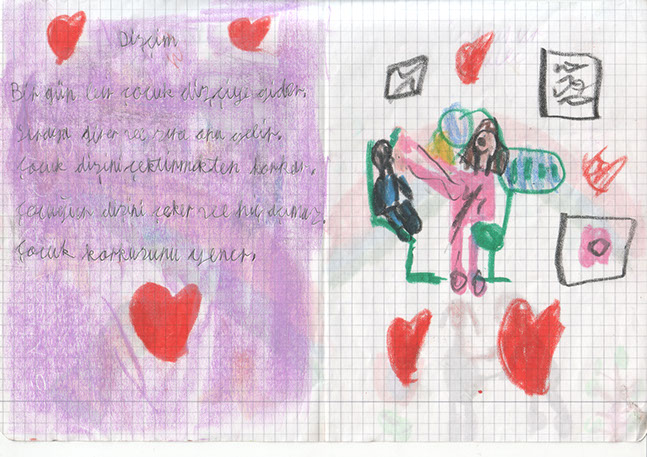 Dişçim
Bir gün bir çocuk dişçiye gider.
ve sıra ona gelir.
Çocuk dişini çektirmekten korkar.
Çocuğun dişini çeker ve
Çocuk korkusunu yener.